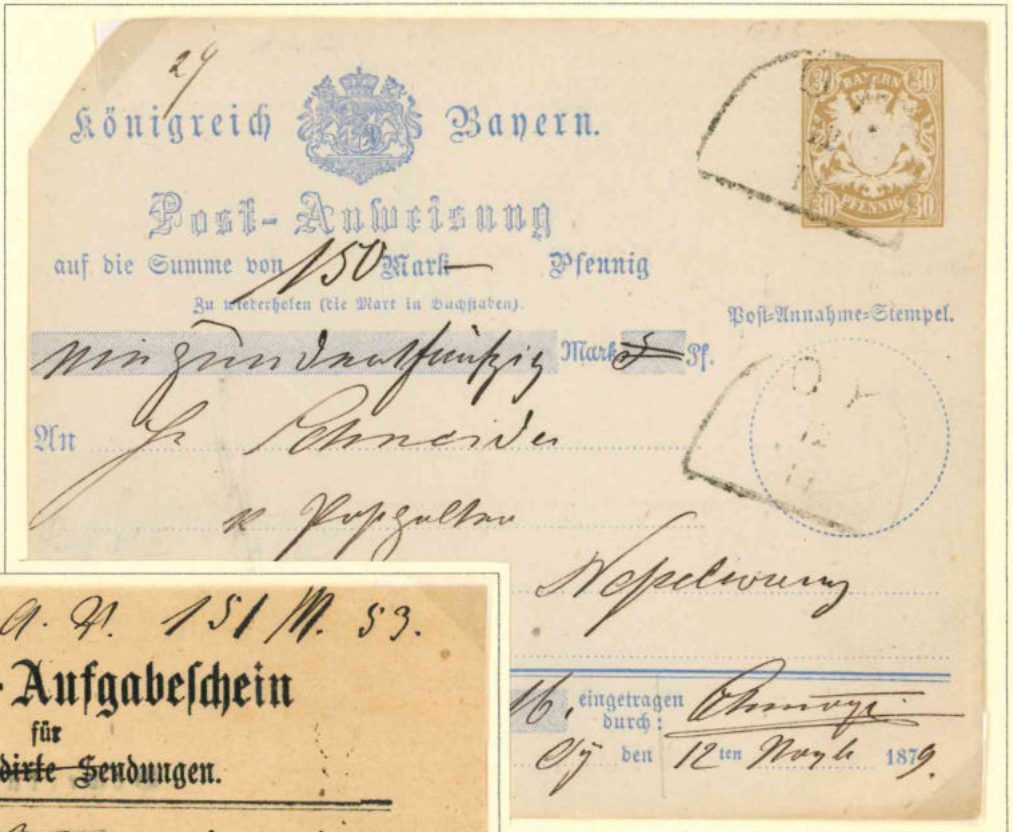 Königreich Bayern.
30 BAYERN 30
30 PFENNIG 30
Post-Anweisung
auf die Summe von 150 Mark — Pfennig
Zu wiederholen (die Mark in Buchstaben).
Post-Annahme-Stempel.
Mark Pf.
OY
12
11
An Schneider
Posthalter
Nesselwang
16. eingetragen
durch:
Oy den 12 ten Novb 1879.
151 M. 53.
Aufgabeschein
für
Sendungen.